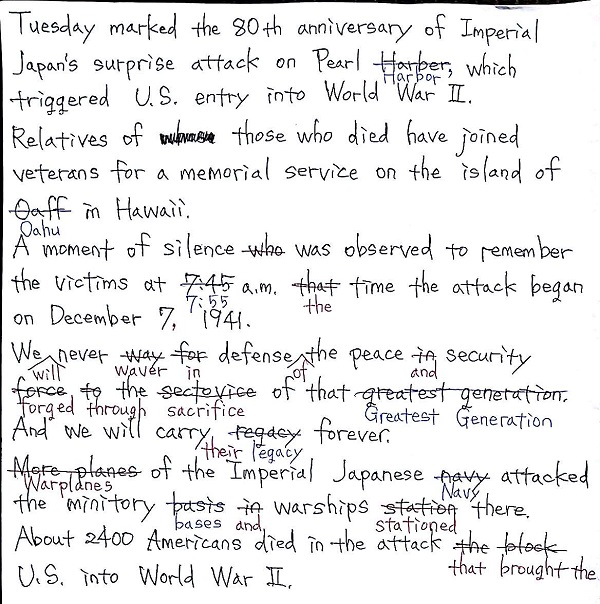 Tuesday marked the 80th anniversary of Imperial
Japan's surprise attack on Pearl Harber, which
Harbor
triggered U.S. entry into World War II.
Relatives of those who died have joined
veterans for a memorial service on the island of
Oaff in Hawaii.
Oahu
A moment of silence who was observed to remember
the victims at 7:45 a.m. that time the attack began
7:55 the
on December 7, 1941.
We never way for defense the peace in security
will waver in of and
force to the sectovice of that greatest generation.
forged through sacrifice Greatest Generation
And we will carry regacy forever.
their legacy
More planes of the Imperial Japanese navy attacked
Warplanes Navy
the minitory basis in warships station there.
bases and stationed
About 2400 Americans died in the attack the block
that brought the
U.S. into World War II.